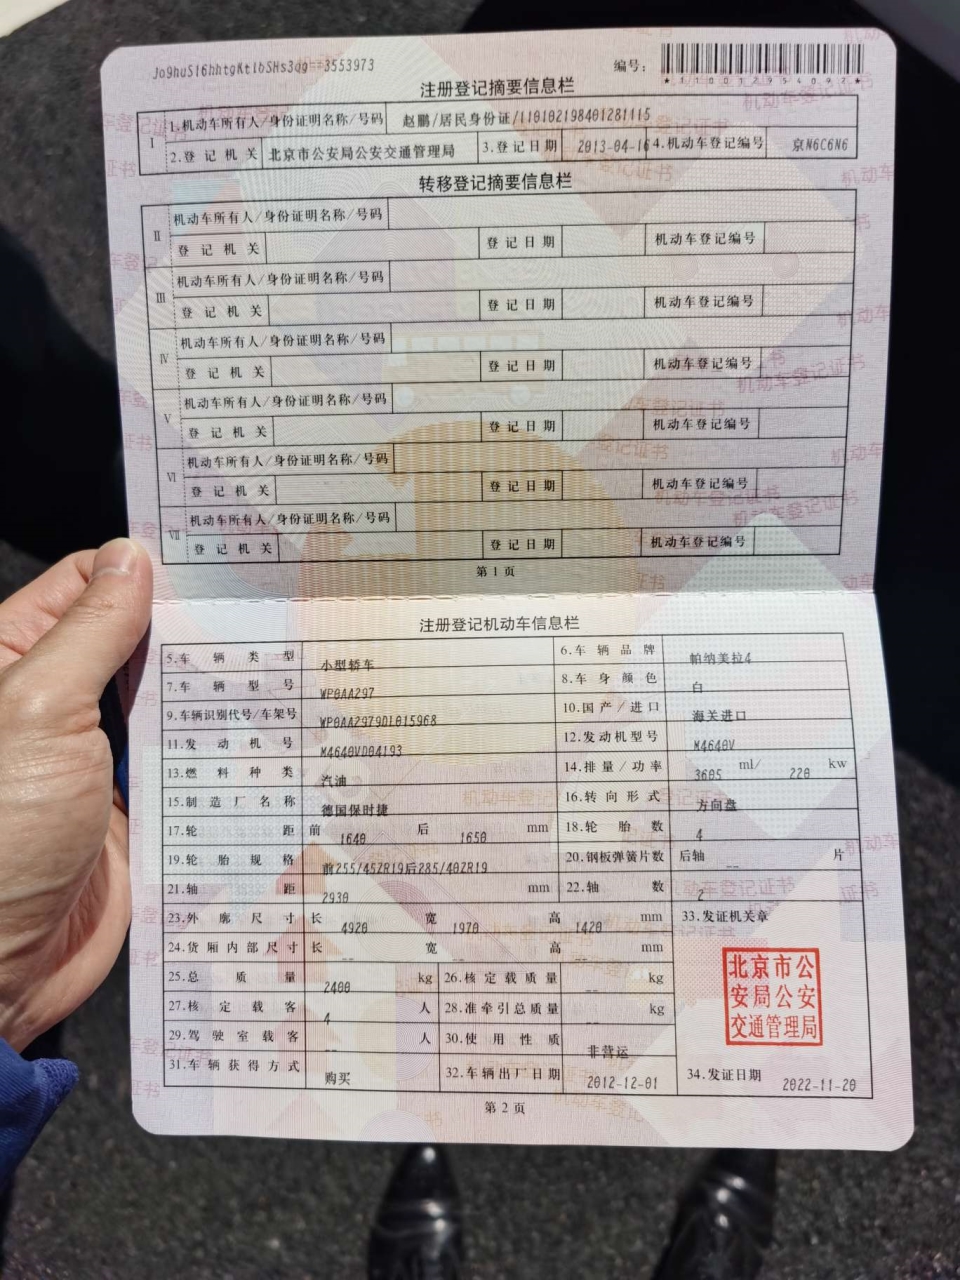 Jo9huSI6hhtgKtlbSHs3qg==3553973
编号:
*110012954092*
注册登记摘要信息栏
I 1.机动车所有人/身份证明名称/号码 赵鹏/居民身份证/110102198401281115
2.登记机关 北京市公安局公安交通管理局 3.登记日期 2013-04-16 4.机动车登记编号 京N6C6N6
转移登记摘要信息栏
II 机动车所有人/身份证明名称/号码
登记机关 登记日期 机动车登记编号
III 机动车所有人/身份证明名称/号码
登记机关 登记日期 机动车登记编号
IV 机动车所有人/身份证明名称/号码
登记机关 登记日期 机动车登记编号
V 机动车所有人/身份证明名称/号码
登记机关 登记日期 机动车登记编号
VI 机动车所有人/身份证明名称/号码
登记机关 登记日期 机动车登记编号
VII 机动车所有人/身份证明名称/号码
登记机关 登记日期 机动车登记编号
第1页
注册登记机动车信息栏
5.车辆类型 小型轿车 6.车辆品牌 帕纳美拉4
7.车辆型号 WP0AA297 8.车身颜色 白
9.车辆识别代号/车架号 WP0AA2979DL015968 10.国产/进口 海关进口
11.发动机号 M4640VD04193 12.发动机型号 M4640V
13.燃料种类 汽油 14.排量/功率 3605 ml/ 220 kw
15.制造厂名称 德国保时捷 16.转向形式 方向盘
17.轮距 前 1640 后 1650 mm 18.轮胎数 4
19.轮胎规格 前255/45ZR19后285/40ZR19 20.钢板弹簧片数 后轴 -- 片
21.轴距 2930 mm 22.轴数 2
23.外廓尺寸 长 4920 宽 1970 高 1420 mm 33.发证机关章
24.货厢内部尺寸 长 -- 宽 -- 高 -- mm
25.总质量 2400 kg 26.核定载质量 -- kg
27.核定载客 4 人 28.准牵引总质量 -- kg
29.驾驶室载客 -- 人 30.使用性质 非营运
31.车辆获得方式 购买 32.车辆出厂日期 2012-12-01 34.发证日期 2022-11-20
北京市公
安局公安
交通管理局
第2页